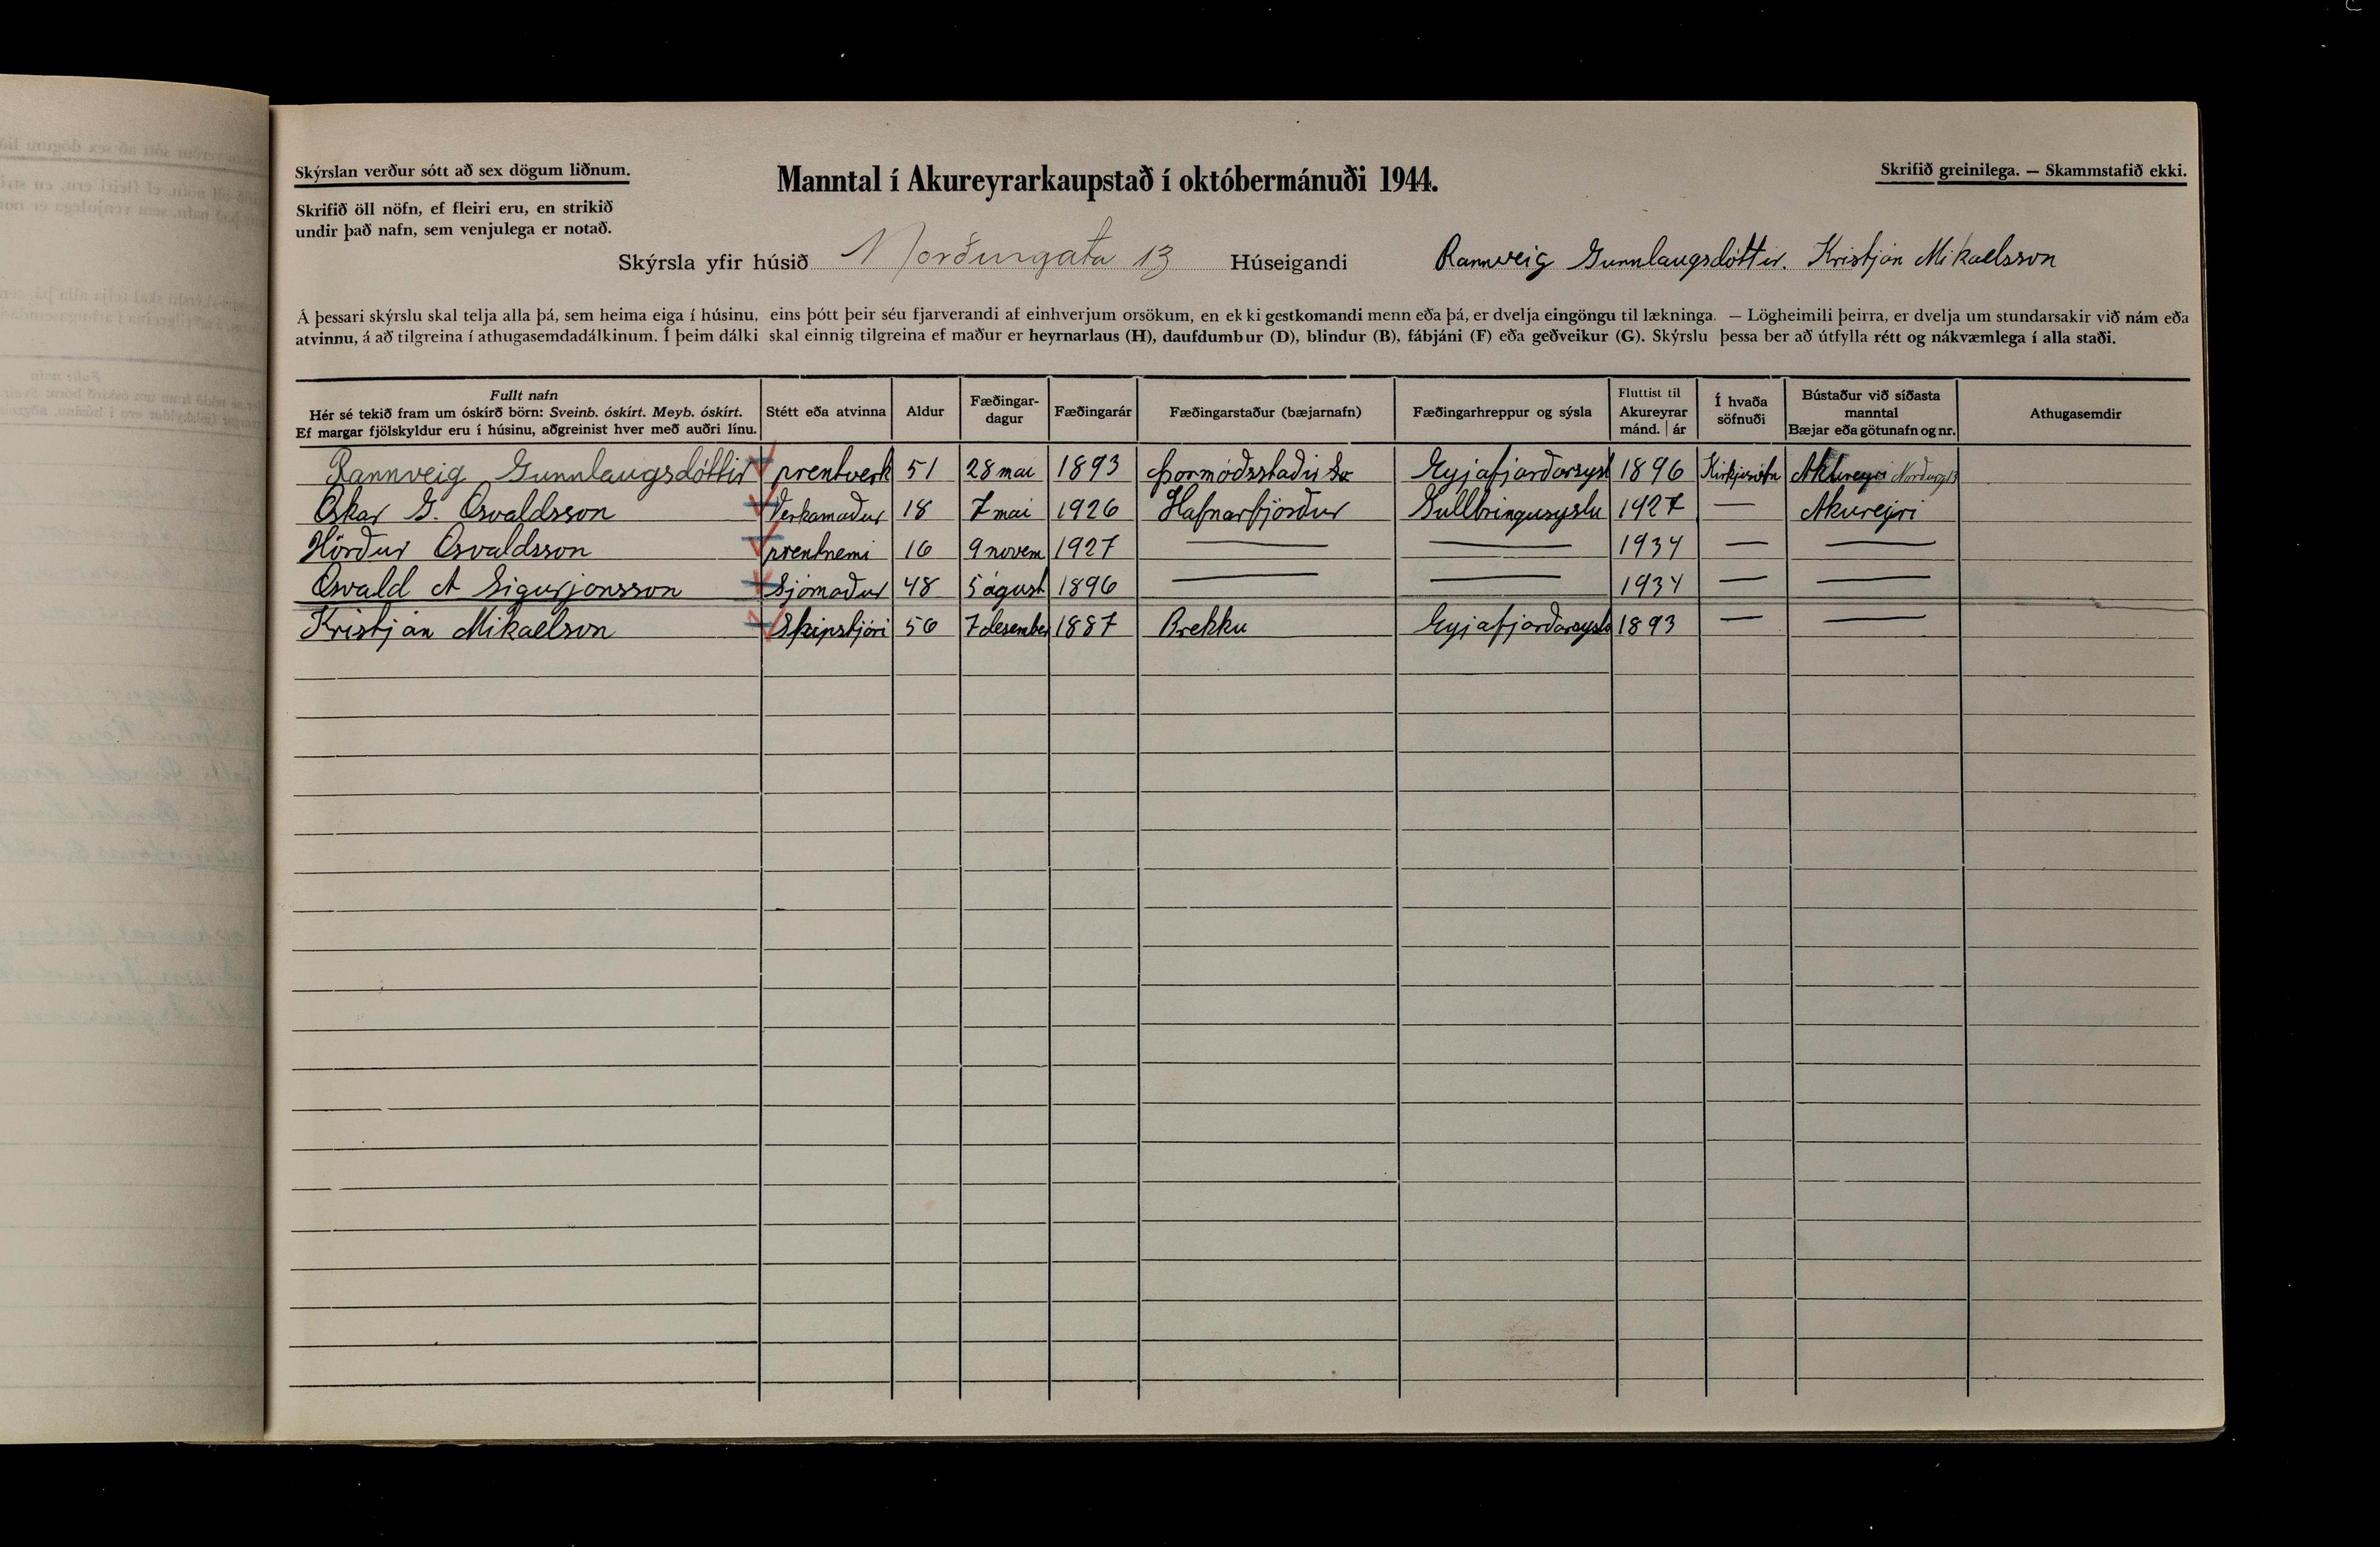 Skýrslan verður sótt að sex dögum liðnum.
Manntal í Akureyrarkaupstað í októbermánuði 1944.
Skrifið greinilega. — Skammstafið ekki.
Skrifið öll nöfn, ef fleiri eru, en strikið
undir það nafn, sem venjulega er notað.
Skýrsla yfir húsið Norðurgata 13 Húseigandi Rannveig Gunnlaugsdóttir. Kristján Mikaelsson
Á þessari skýrslu skal telja alla þá, sem heima eiga í húsinu, eins þótt þeir séu fjarverandi af einhverjum orsökum, en ekki gestkomandi menn eða þá, er dvelja eingöngu til lækninga. — Lögheimili þeirra, er dvelja um stundarsakir við nám eða
atvinnu, á að tilgreina í athugasemdadálkinum. Í þeim dálki skal einnig tilgreina ef maður er heyrnarlaus (H), daufdumbur (D), blindur (B), fábjáni (F) eða geðveikur (G). Skýrslu þessa ber að útfylla rétt og nákvæmlega í alla staði.
Fullt nafn
Hér sé tekið fram um óskírð börn: Sveinb. óskírt. Meyb. óskírt.
Ef margar fjölskyldur eru í húsinu, aðgreinist hver með auðri línu.
Stétt eða atvinna
Aldur
Fæðingar-
dagur
Fæðingarár
Fæðingarstaður (bæjarnafn)
Fæðingarhreppur og sýsla
Fluttist til
Akureyrar
mánd. | ár
Í hvaða
söfnuði
Bústaður við síðasta
manntal
Bæjar eða götunafn og nr.
Athugasemdir
Rannveig Gunnlaugsdóttir prentverk 51 28 mai 1893 Þormóðsstaðir Eyjafjarðarsysl 1896 Akureyri Norðurg 13
Oskar G. Osvaldsson Verkamaður 18 7 mai 1926 Hafnarfjörður Gullbringusyslu 1927 — Akureyri
Hörður Osvaldsson prentnemi 16 9 novem 1927 — — 1934 — —
Osvald A Sigurjonsson Sjómaður 48 5 águst 1896 — — 1934 — —
Kristján Mikaelson Skipstjóri 56 7 desember 1887 Brekku Eyjafjarðarsysla 1893 — —